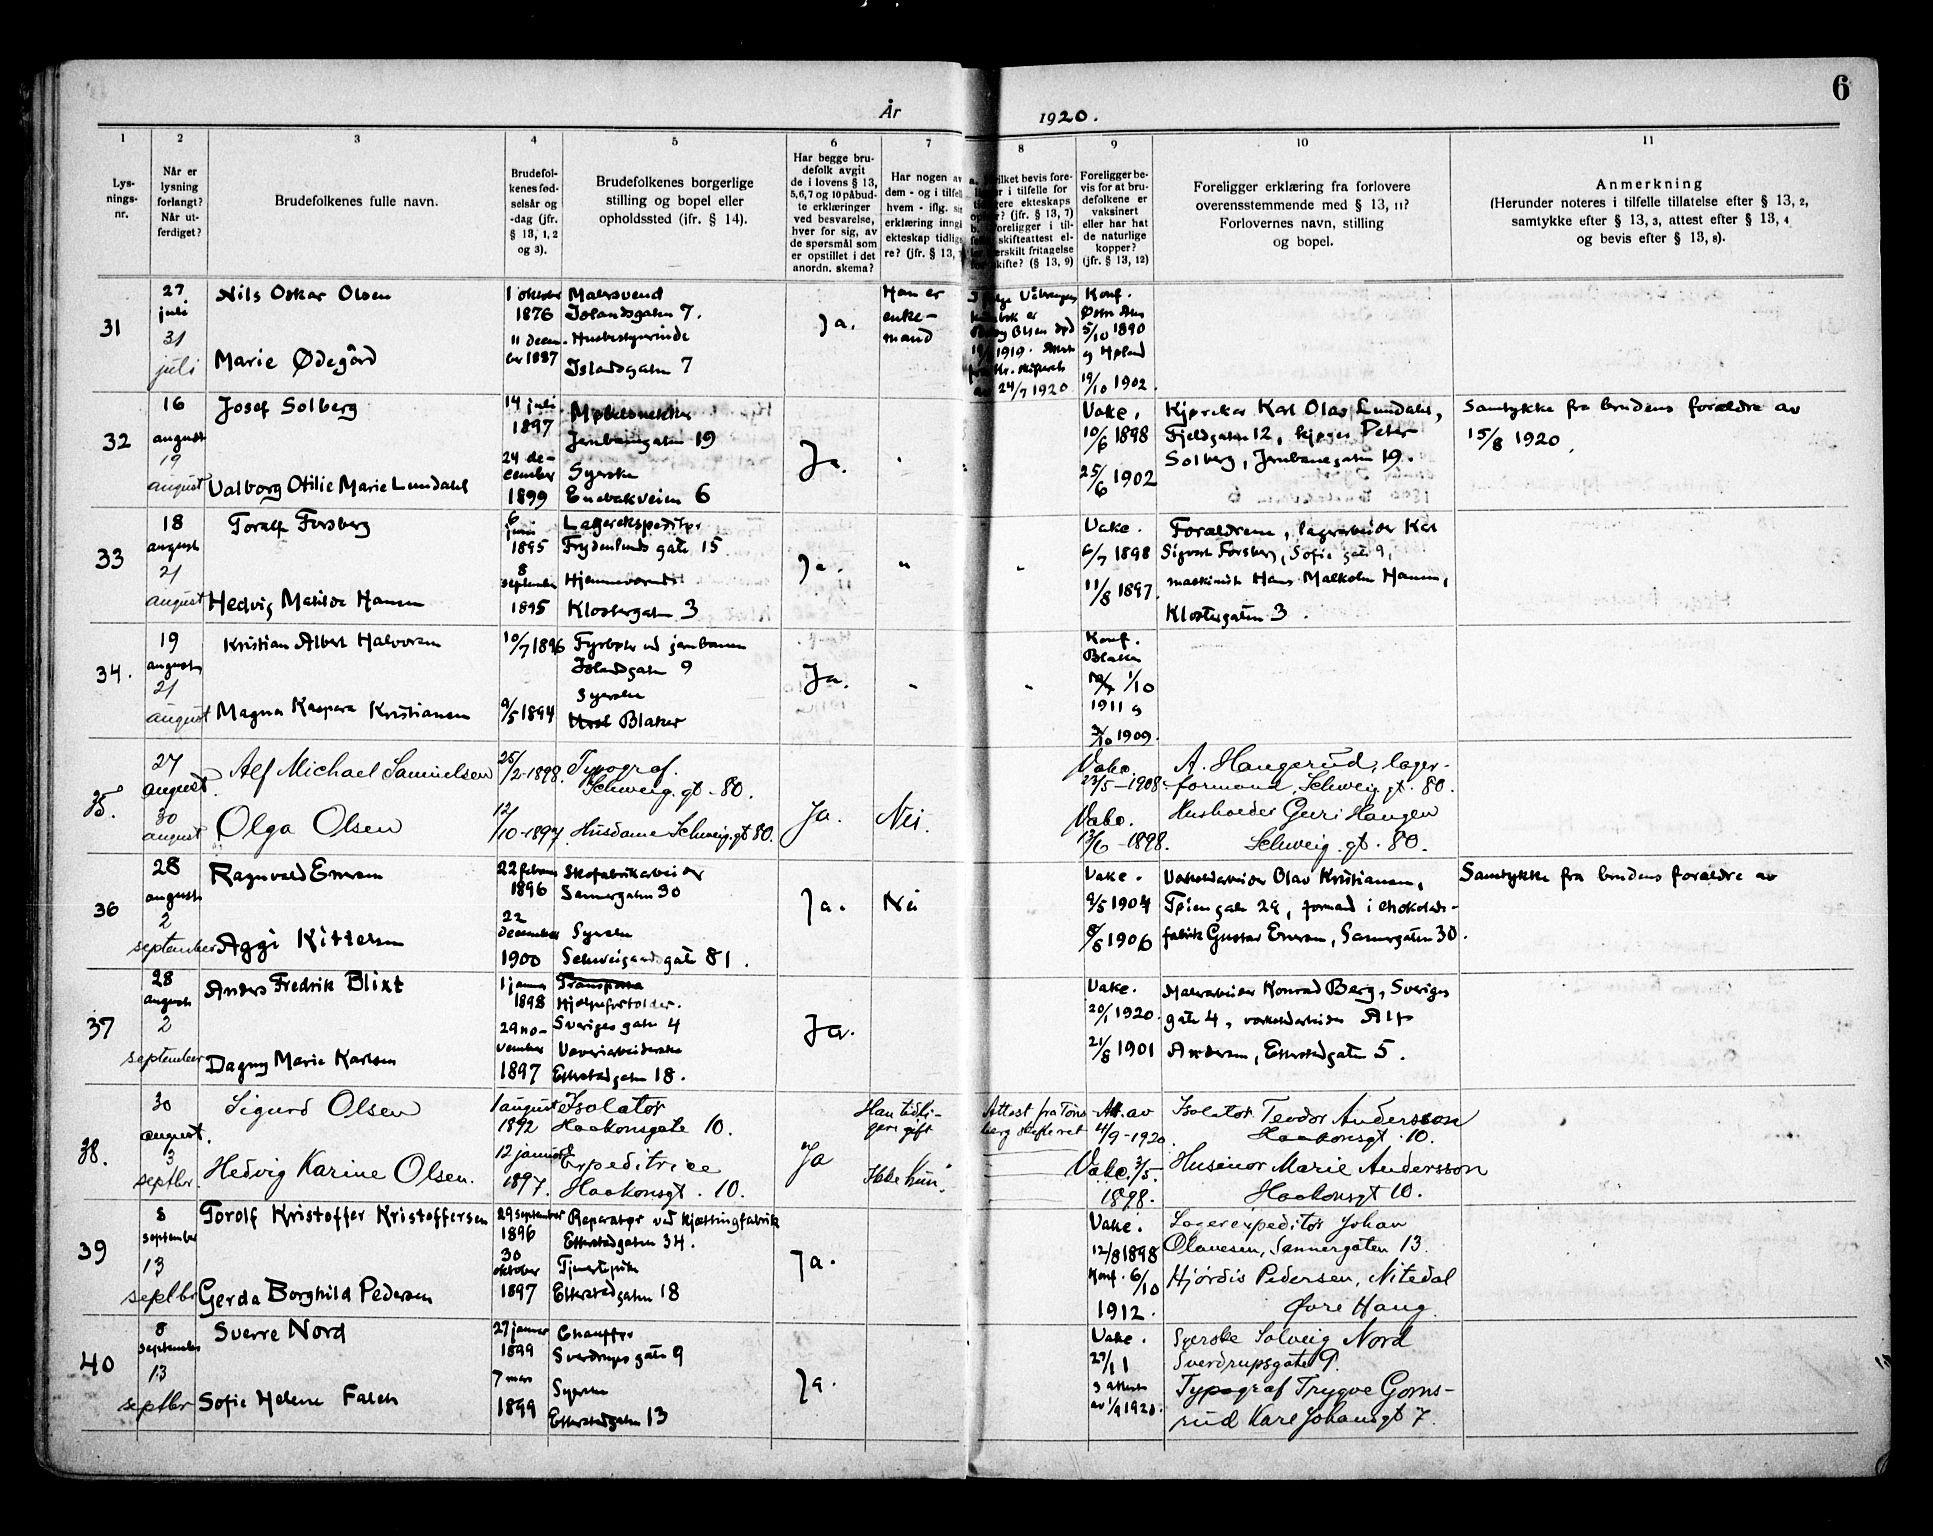 6
År 1920.
1
Lys-
nings-
nr.
2
Når er
lysning
forlangt?
Når ut-
ferdiget?
3
Brudefolkenes fulle navn.
4
Brudefol-
kenes fød-
selsår og
-dag (jfr.
§ 13, 1, 2
og 3).
5
Brudefolkenes borgerlige
stilling og bopel eller
opholdssted (jfr. § 14).
6
Har begge bru-
defolk avgit
de i lovens § 13,
5,6,7 og 10 påbud-
te erklæringer
ved besvarelse,
hver for sig, av
de spørsmål som
er opstillet i det
anordn. skema?
7
Har nogen av
dem - og i tilfelle
hvem - iflg.
erklæring inngå
ekteskap tidlig
re? (jfr. § 13,
8
9
Foreligger be-
vis for at bru-
defolkene er
vaksinert
eller har hat
de naturlige
kopper?
(jfr. § 13, 12)
10
Foreligger erklæring fra forlovere
overensstemmende med § 13, 11?
Forlovernes navn, stilling
og bopel.
11
Anmerkning
(Herunder noteres i tilfelle tillatelse efter § 13, 2,
samtykke efter § 13, 3, attest efter § 13, 4
og bevis efter § 13, 8).
31
27
juli
31
juli
Nils Oskar Olsen
Marie Ødegård
1 oktober
1876
11 decem-
ber 1887
Malersvend
Islandsgaten 7.
Husbestyrerinde
Islandsgaten 7
Ja.
Han er
enke-
mand
Konf.
5/10 1890
19/10 1902.
32
16
august
19
august
Josef Solberg
Valborg Otilie Marie Lundahl
14 juli
1897
24 de-
cember
1899
Møbelsnekker
Jernbanegaten 19
Syerske
Enebakveien 6
Ja.
"
Vakc.
10/6 1898
25/6 1902
Karl Olav Lundahl,
Fjeldgaten 12, Peter
Solberg, Jernbanegaten 19.
Samtykke fra brudens forældre av
15/8 1920.
33
18
august
21
august
Toralf Forsberg
Hedvig Matilde Hansen
6
juni
1895
8
september
1895
Lagerekspeditør
Frydenlunds gate 15
Hjemmeværende
Klostergaten 3
Ja.
"
"
Vakc.
6/7 1898
11/8 1897.
Forældrene, lagerarbeider Karl
Sigvart Forsberg, Sofies gate 9,
maskinist Hans Malkolm Hansen,
Klostergaten 3.
34.
19
august
21
august
Kristian Albert Halvorsen
Magna Kaspara Kristiansen
10/7 1896
9/5 1894
Fyrbøter ved jernbanen
Islandsgaten 9
Syerske
Blaker
Ja.
"
"
Konf.
Blaker
1/10
1911 og
3/10 1909.
35.
27
august.
30
august
Alf Michael Samuelsen
Olga Olsen
25/2-1898.
12/10-1897.
Typograf.
Schweig. gt. 80.
Husdame Schweig. gt 80.
Ja.
Nei.
Vakc.
23/5-1908.
Vakc.
13/6-1898.
A. Haugerud, lager-
formand, Schweig. gt. 80.
Husholder Guri Haugen
Schweig. gt. 80.
36
28
august
2
september
Ragnvald Enersen
Aggi Kittersen
22 februar
1896
22
december
1900
Skofabrikarbeider
Sannergaten 30
Syerske
Schweigaardsgate 81.
Ja.
Nei
Vakc.
9/5 1904
8/6 1906
Verkstedarbeider Olav Kristiansen,
gate 29, formand i chokolade-
fabrik Gustav Enersen, Sannergaten 30.
Samtykke fra brudens forældre av
37
28
august
2
september
Anders Fredrik Blixt
Dagny Marie Karlsen
1 januar
1898
29 no-
vember
1897
Hjælpeforholder.
Sveriges gate 4
Væveriarbeiderske
Etterstadgaten 18.
Ja.
Vakc.
20/1 1920.
21/8 1901
Malerarbeider Konrad Berg, Sveriges
gate 4, verkstedarbeider Alf
Andersen, Etterstadgaten 5.
38.
30
august.
3
septbr.
Sigurd Olsen
Hedvig Karine Olsen.
1 august
1892
12 januar
1897.
Isolatør
Haakonsgate 10.
Expeditrice
Haakonsgt. 10.
Ja
Han tidli-
gere gift
Ikke hun.
Attest fra Tøns-
berg skifteret
Att. av
4/9-1920.
Vakc. 3/5.
1898.
Isolatør Teodor Andersson
Haakonsgt. 10.
Husmor Marie Andersson
Haakonsgt 10.
39
8
september
13
septbr
Torolf Kristoffer Kristoffersen
Gerda Borghild Pedersen
29 september
1896
30
oktober
1897
Reparatør ved kjættingfabrik
Etterstadgaten 34.
Tjenestepike
Etterstadgaten 18
Ja.
Vakc.
12/8 1898
Konf. 6/10
1912.
Lagerexpeditør Johan
Olavesen, Sannergaten 13.
Hjørdis Pedersen, Nitedal
Øvre Haug.
40
8
september
13
septbr
Sverre Nord
Sofie Helene Falch
27 januar
1899
7 mars
1899
Chauffør
Sverdrups gate 9
Syerske
Etterstadgaten 13
Ja.
Vakc.
og attest
av 1/9 1920.
Syerske Solveig Nord
Sverdrupsgate 9.
Typograf Trygve Goms-
rud Karl Johansgt 7.